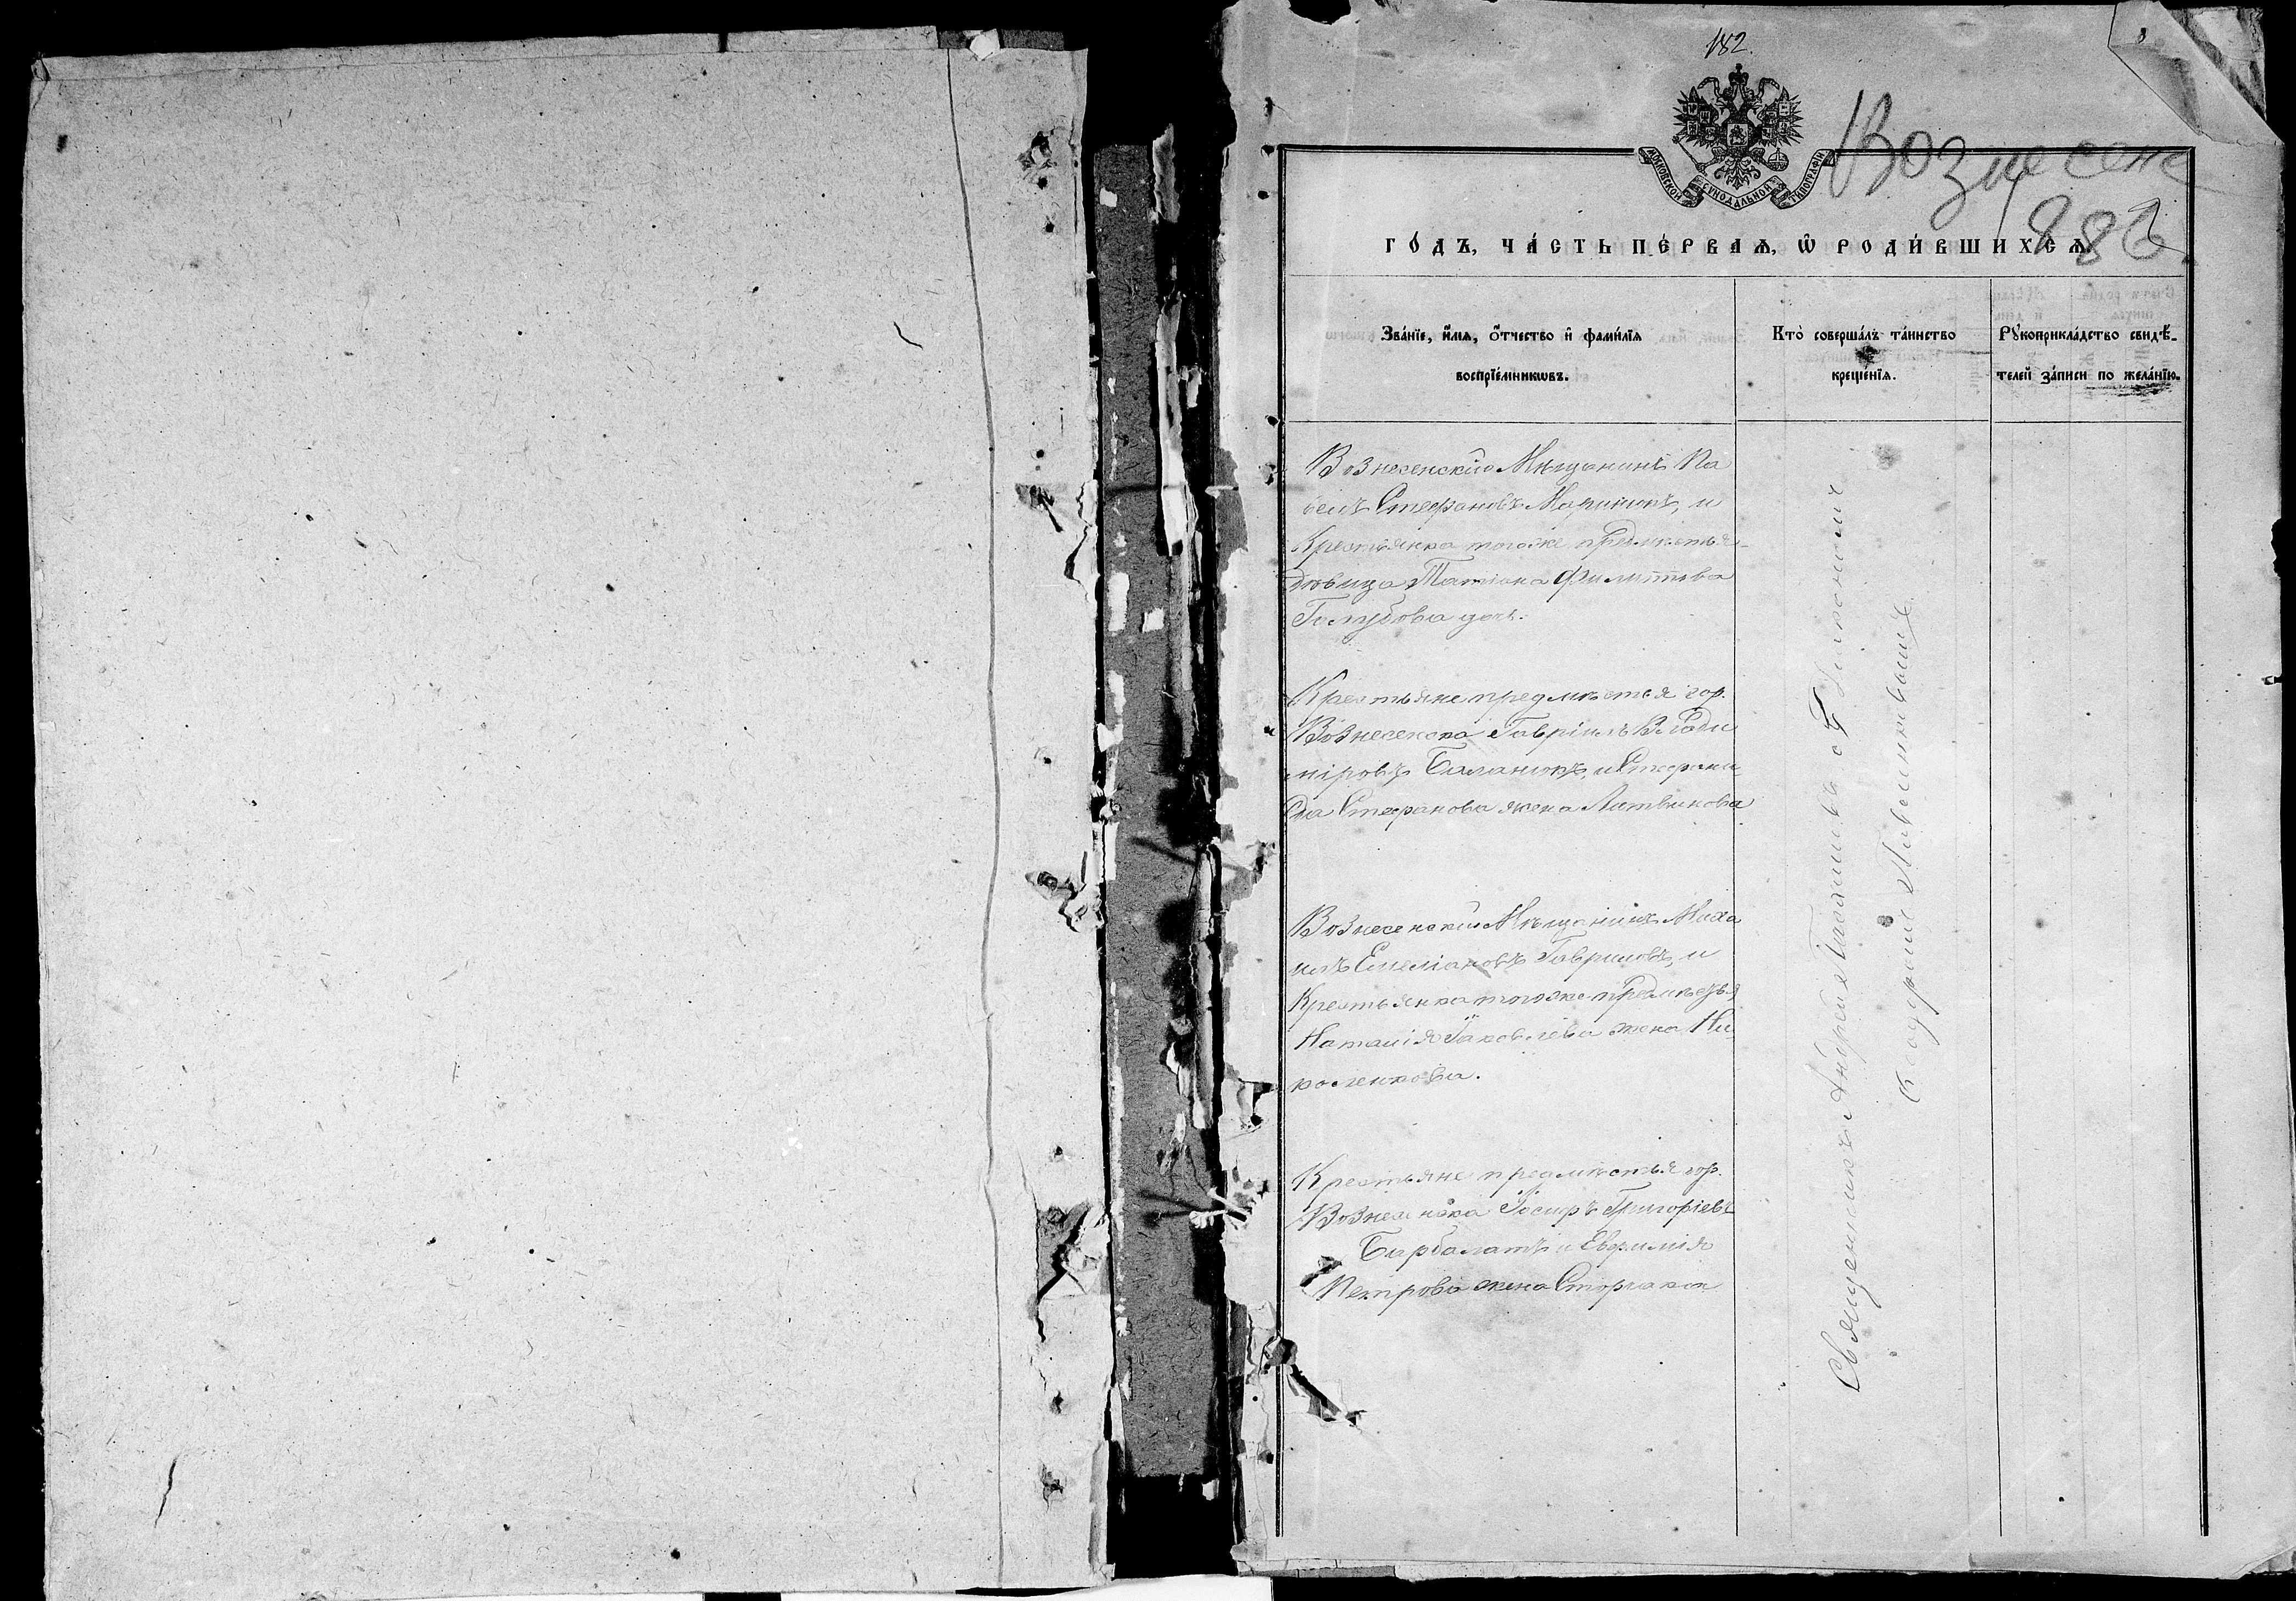 182.
МОСКОВСКОЙ СѴНОДАЛЬНОЙ ТИПОГРАФІИ
Вознесенс
ГО́ДЪ, ЧА́СТЬ ПЕ́РВАѦ, Ѡ҆ РОДИ́ВШИХСѦ.
Зва́нїе, и҆́мѧ, ѻ҆́тчество и҆ фами́лїѧ
воспрїе́мникѡвъ.
Кто̀ соверша́лъ та́инство
креще́нїѧ.
Рꙋкоприкла́дство свидѣ́-
телей за́писи по жела́нїю.
Вознесенскій Мѣщанинъ Па
велъ Стефановъ и
Крестьянка тогоже предмѣстья
дѣвица Татіана Филиппова
Голубова дочь.
Крестьяне предмѣстья гор.
Вознесенска Гавріилъ Влади
міровъ Баланюкъ, и Стефани
да Стефанова жена Литвинова
Вознесенскій Мѣщанинъ Миха
илъ Емеліановъ Гавриловъ, и
Крестьянка тогоже предмѣстья
Наталія Іаковлева жена Ни
коленкова.
Крестьяне предмѣстья гор.
Вознесенска Іосифъ Григоріевъ
Барбалатъ и Евфимія
Петрова жена
Священникъ Андрей съ